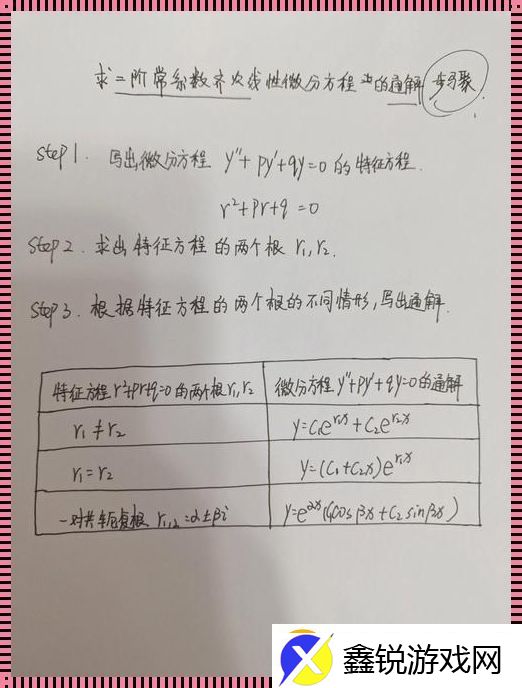 求二阶常系数齐次线性微分方程的通解 步骤
Step 1. 写出微分方程 y"+py'+qy=0 的特征方程.
r²+pr+q=0
Step 2. 求出特征方程的两个根 r₁,r₂.
Step 3. 根据特征方程的两个根的不同情形,写出通解.
特征方程 r²+pr+q=0 的两个根 r₁,r₂ 微分方程 y"+py'+qy=0 的通解
r₁≠r₂ y=C₁e^{r₁x}+C₂e^{r₂x}
r₁=r₂ y=(C₁+C₂x)e^{r₁x}
一对共轭复根 r₁,₂=α±βi y=e^{αx}(C₁cosβx+C₂sinβx)
鑫锐游戏网